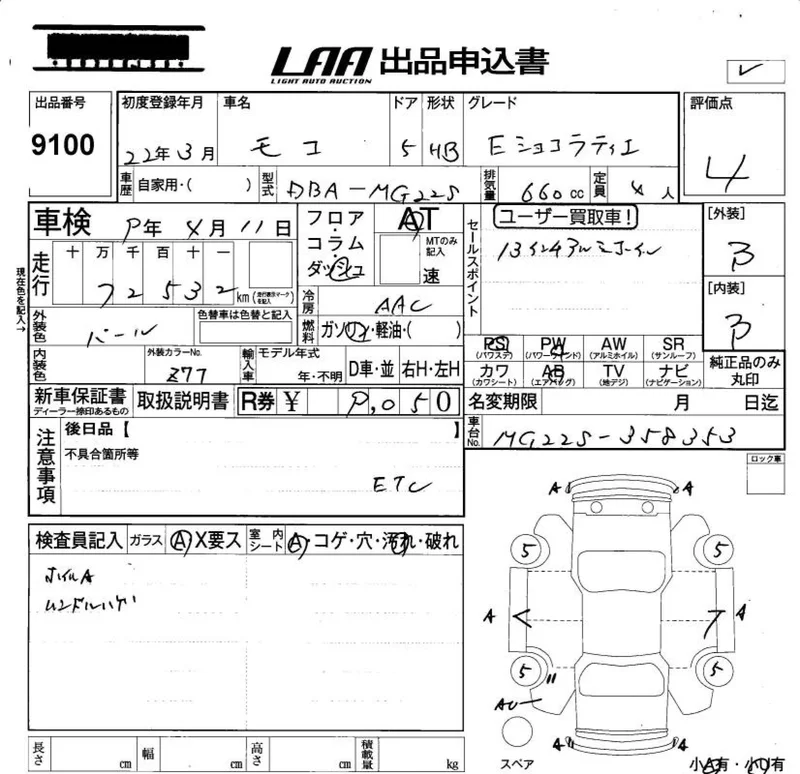 LAA 出品申込書
LIGHT AUTO AUCTION
出品番号
9100
初度登録年月
22年3月
車名
モコ
ドア
5
形状
HB
グレード
Eショコラティエ
評価点
4
車歴 自家用・( )
型式 DBA-MG22S
排気量 660cc
定員 4人
車検 年4月11日
走行
十 万 千 百 十 一
72532 km
(走行表示マークを記入)
現在色を記入→
フロア・コラム・ダッシュ
AT
MTのみ記入
速
セールスポイント
ユーザー買取車!
13インチアルミホイル
[外装]
B
[内装]
B
冷房 AAC
燃料 ガソリン・軽油・( )
外装色 パール
色替車は色替と記入
内装色
外装カラーNo.
Z77
輸入車
モデル年式
年・不明
D車・並
右H・左H
PS (パワステ)
PW (パワーウインド)
AW (アルミホイル)
SR (サンルーフ)
カワ (カワシート)
AB (エアバッグ)
TV (地デジ)
ナビ (ナビゲーション)
純正品のみ丸印
新車保証書
ディーラー捺印あるもの
取扱説明書
R券 ¥
050
名変期限 月 日迄
車台No. MG22S-358353
注意事項
後日品【 】
不具合箇所等
ETC
ロック車
検査員記入
ガラス A X要ス
室内シート A・コゲ・穴・汚れ・破れ
ホイルA
ハンドルハゲ
A A
5 5
A A
5 5
A A
スペア
小A有・小U有
長さ cm
幅 cm
高さ cm
積載量 kg